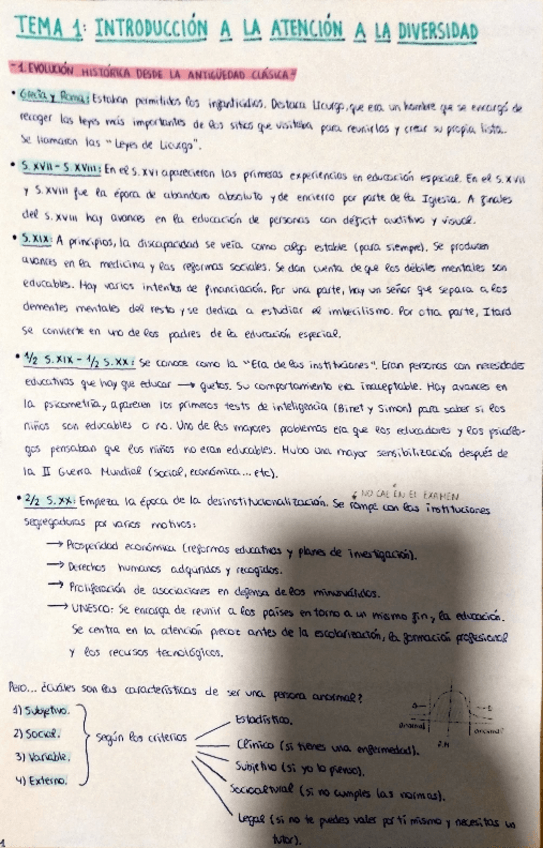 TEMA 1: INTRODUCCIÓN A LA ATENCIÓN A LA DIVERSIDAD
-1. EVOLUCIÓN HISTÓRICA DESDE LA ANTIGÜEDAD CLÁSICA-
• Grecia y Roma: Estaban permitidos los infanticidios. Destaca Licurgo, que era un hombre que se encargó de
recoger las leyes más importantes de los sitios que visitaba para reunirlas y crear su propia lista.
Se llamaron las "Leyes de Licurgo".
• S. XVII - S. XVIII: En el S. XVI aparecieron las primeras experiencias en educación especial. En el S. XVII
y S. XVIII fue la época de abandono absoluto y de encierro por parte de la Iglesia. A finales
del S. XVIII hay avances en la educación de personas con déficit auditivo y visual.
• S. XIX: A principios, la discapacidad se veía como algo estable (para siempre). Se producen
avances en la medicina y las reformas sociales. Se dan cuenta de que los débiles mentales son
educables. Hay varios intentos de financiación. Por una parte, hay un señor que separa a los
dementes mentales del resto y se dedica a estudiar el imbecilismo. Por otra parte, Itard
se convierte en uno de los padres de la educación especial.
• 1/2 S. XIX - 1/2 S. XX: Se conoce como la "Era de las instituciones". Eran personas con necesidades
educativas que hay que educar → guetos. Su comportamiento era inaceptable. Hay avances en
la psicometría, aparecen los primeros tests de inteligencia (Binet y Simon) para saber si los
niños son educables o no. Uno de los mayores problemas era que los educadores y los psicólo-
gos pensaban que los niños no eran educables. Hubo una mayor sensibilización después de
la II Guerra Mundial (social, económica... etc).
• 2/2 S. XX: Empieza la época de la desinstitucionalización. Se rompe con las instituciones
NO CAE EN EL EXAMEN
segregadoras por varios motivos:
→ Prosperidad económica (reformas educativas y planes de investigación).
→ Derechos humanos adquiridos y recogidos.
→ Proliferación de asociaciones en defensa de los minusválidos.
→ UNESCO: Se encarga de reunir a los países en torno a un mismo fin, la educación.
Se centra en la atención precoz antes de la escolarización, la formación profesional
y los recursos tecnológicos.
Pero... ¿cuáles son las características de ser una persona anormal?
1) Subjetivo.
2) Social.
3) Variable.
4) Externo.
Según los criterios
Estadístico.
Clínico (si tienes una enfermedad).
Subjetivo (si yo lo pienso).
Sociocultural (si no cumples las normas).
Legal (si no te puedes valer por ti mismo y necesitas un
tutor).
1